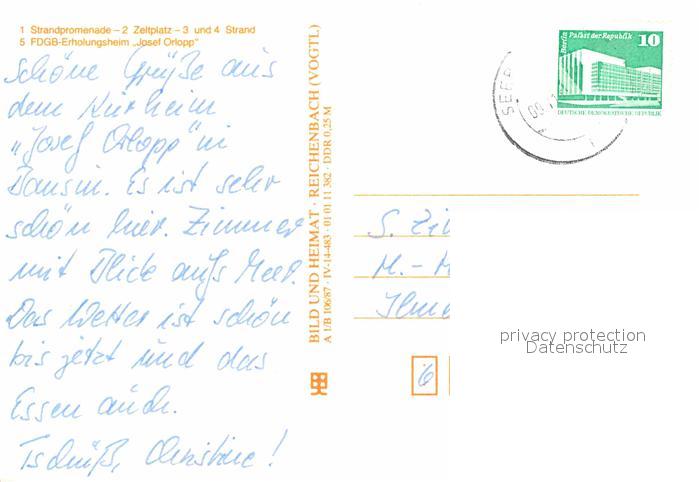 1 Strandpromenade – 2 Zeltplatz – 3 und 4 Strand
5 FDGB-Erholungsheim „Josef Orlopp"
Schöne Grüße aus
dem Kurheim
„Josef Orlopp" in
Bansin. Es ist sehr
schön hier. Zimmer
mit Blick aufs Meer.
Das Wetter ist schön
bis jetzt und das
Essen auch.
Tschüß, Christine!
BILD UND HEIMAT · REICHENBACH (VOGTL)
A 1/B 106/87 · IV-14-483 · 01 01 11 382 · DDR 0,25 M
Berlin Palast der Republik 10
DEUTSCHE DEMOKRATISCHE REPUBLIK
SEEB
09.
S.
M. -
Ilme
6
privacy protection
Datenschutz